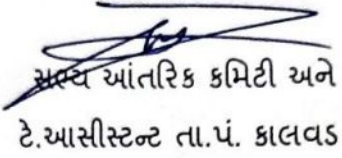 સભ્ય આંતરિક કમિટી અને
ટે.આસીસ્ટન્ટ તા.પં. કાલવડ